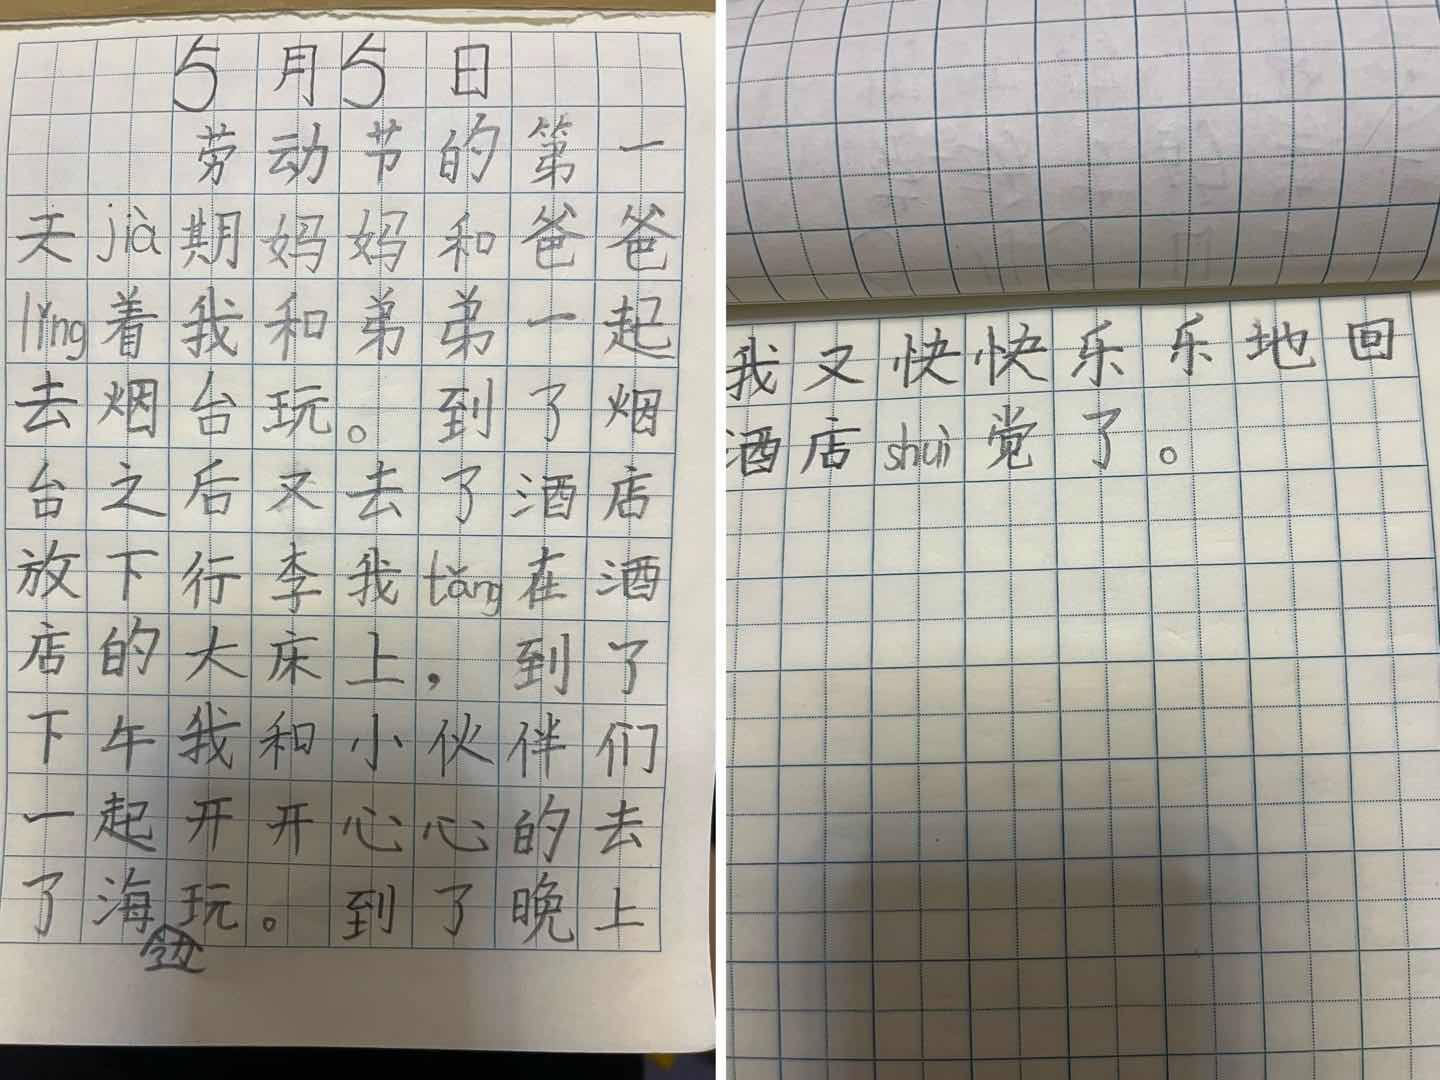 5月5日
劳动节的第一
天jià期妈妈和爸爸
lǐng着我和弟弟一起
去烟台玩。到了烟
台之后又去了酒店
放下行李我tǎng在酒
店的大床上，到了
下午我和小伙伴们
一起开开心心的去
了海边玩。到了晚上
我又快快乐乐地回
酒店shuì觉了。